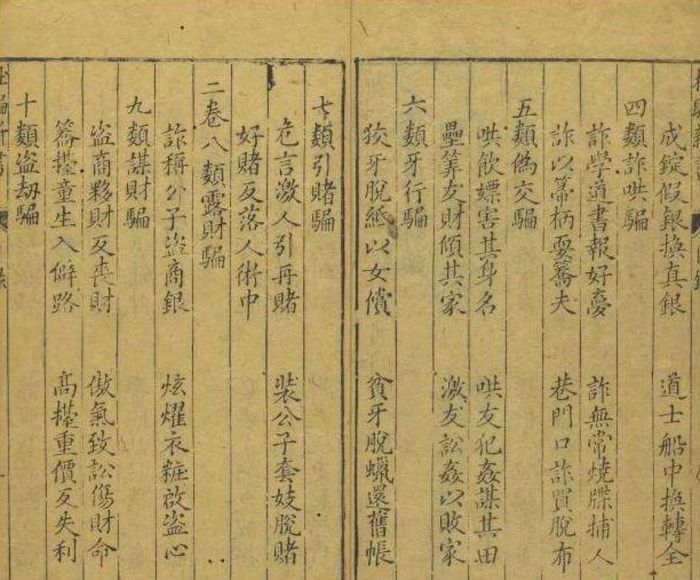 成錠假銀換真銀 道士船中換轉金
四類詐哄騙
詐學道書報好夢 詐無常燒牒捕人
詐以帚柄耍轎夫 巷門口詐買脫布
五類偽交騙
哄飲嫖害其身名 哄友犯姦謀其田
壘算友財傾其家 激友訟姦以敗家
六類牙行騙
狡牙脫紙以女償 貧牙脫蠟還舊帳
七類引賭騙
危言激人引再賭 裝公子套妓脫賭
好賭反落人術中
二卷八類露財騙
詐稱公子盜商銀 炫耀衣粧啟盜心
九類謀財騙
盜商夥財反喪財 傲氣致訟傷財命
轎擡童生入僻路 高擡重價反失利
十類盜劫騙